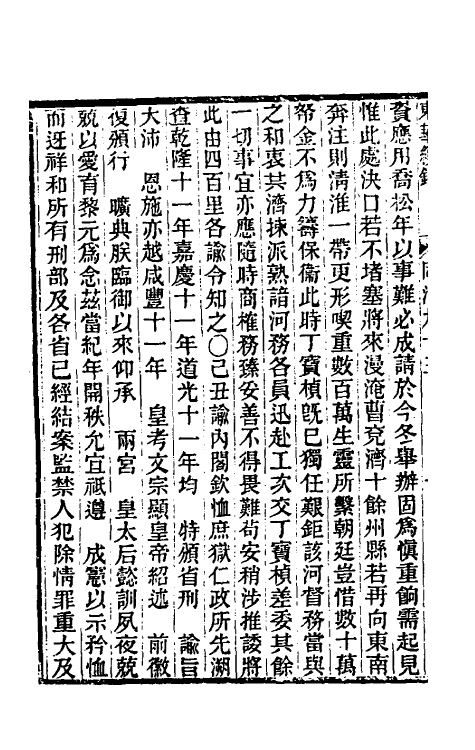 東華續錄 同治九十三
資應用喬松年以事難必成請於今冬舉辦固爲愼重餉需起見
惟此處決口若不堵塞將來漫淹曹兗濟十餘州縣若再向東南
奔注則淸淮一帶更形喫重數百萬生靈所繫朝廷豈惜數十萬
帑金不爲力籌保衞此時丁寶楨旣已獨任艱鉅該河督務當與
之和衷共濟揀派熟諳河務各員迅赴工次交丁寶楨差委其餘
一切事宜亦應隨時商榷務臻妥善不得畏難苟安稍涉推諉將
此由四百里各諭令知之〇己丑諭內閣欽恤庶獄仁政所先溯
查乾隆十一年嘉慶十一年道光十一年均 特頒省刑 諭旨
大沛 恩施亦越咸豐十一年 皇考文宗顯皇帝紹述 前徽
復頒行 曠典朕臨御以來仰承 兩宮 皇太后懿訓夙夜兢
兢以愛育黎元爲念茲當紀年開秩允宜祇遵 成憲以示矜恤
而迓祥和所有刑部及各省已經結案監禁人犯除情罪重大及